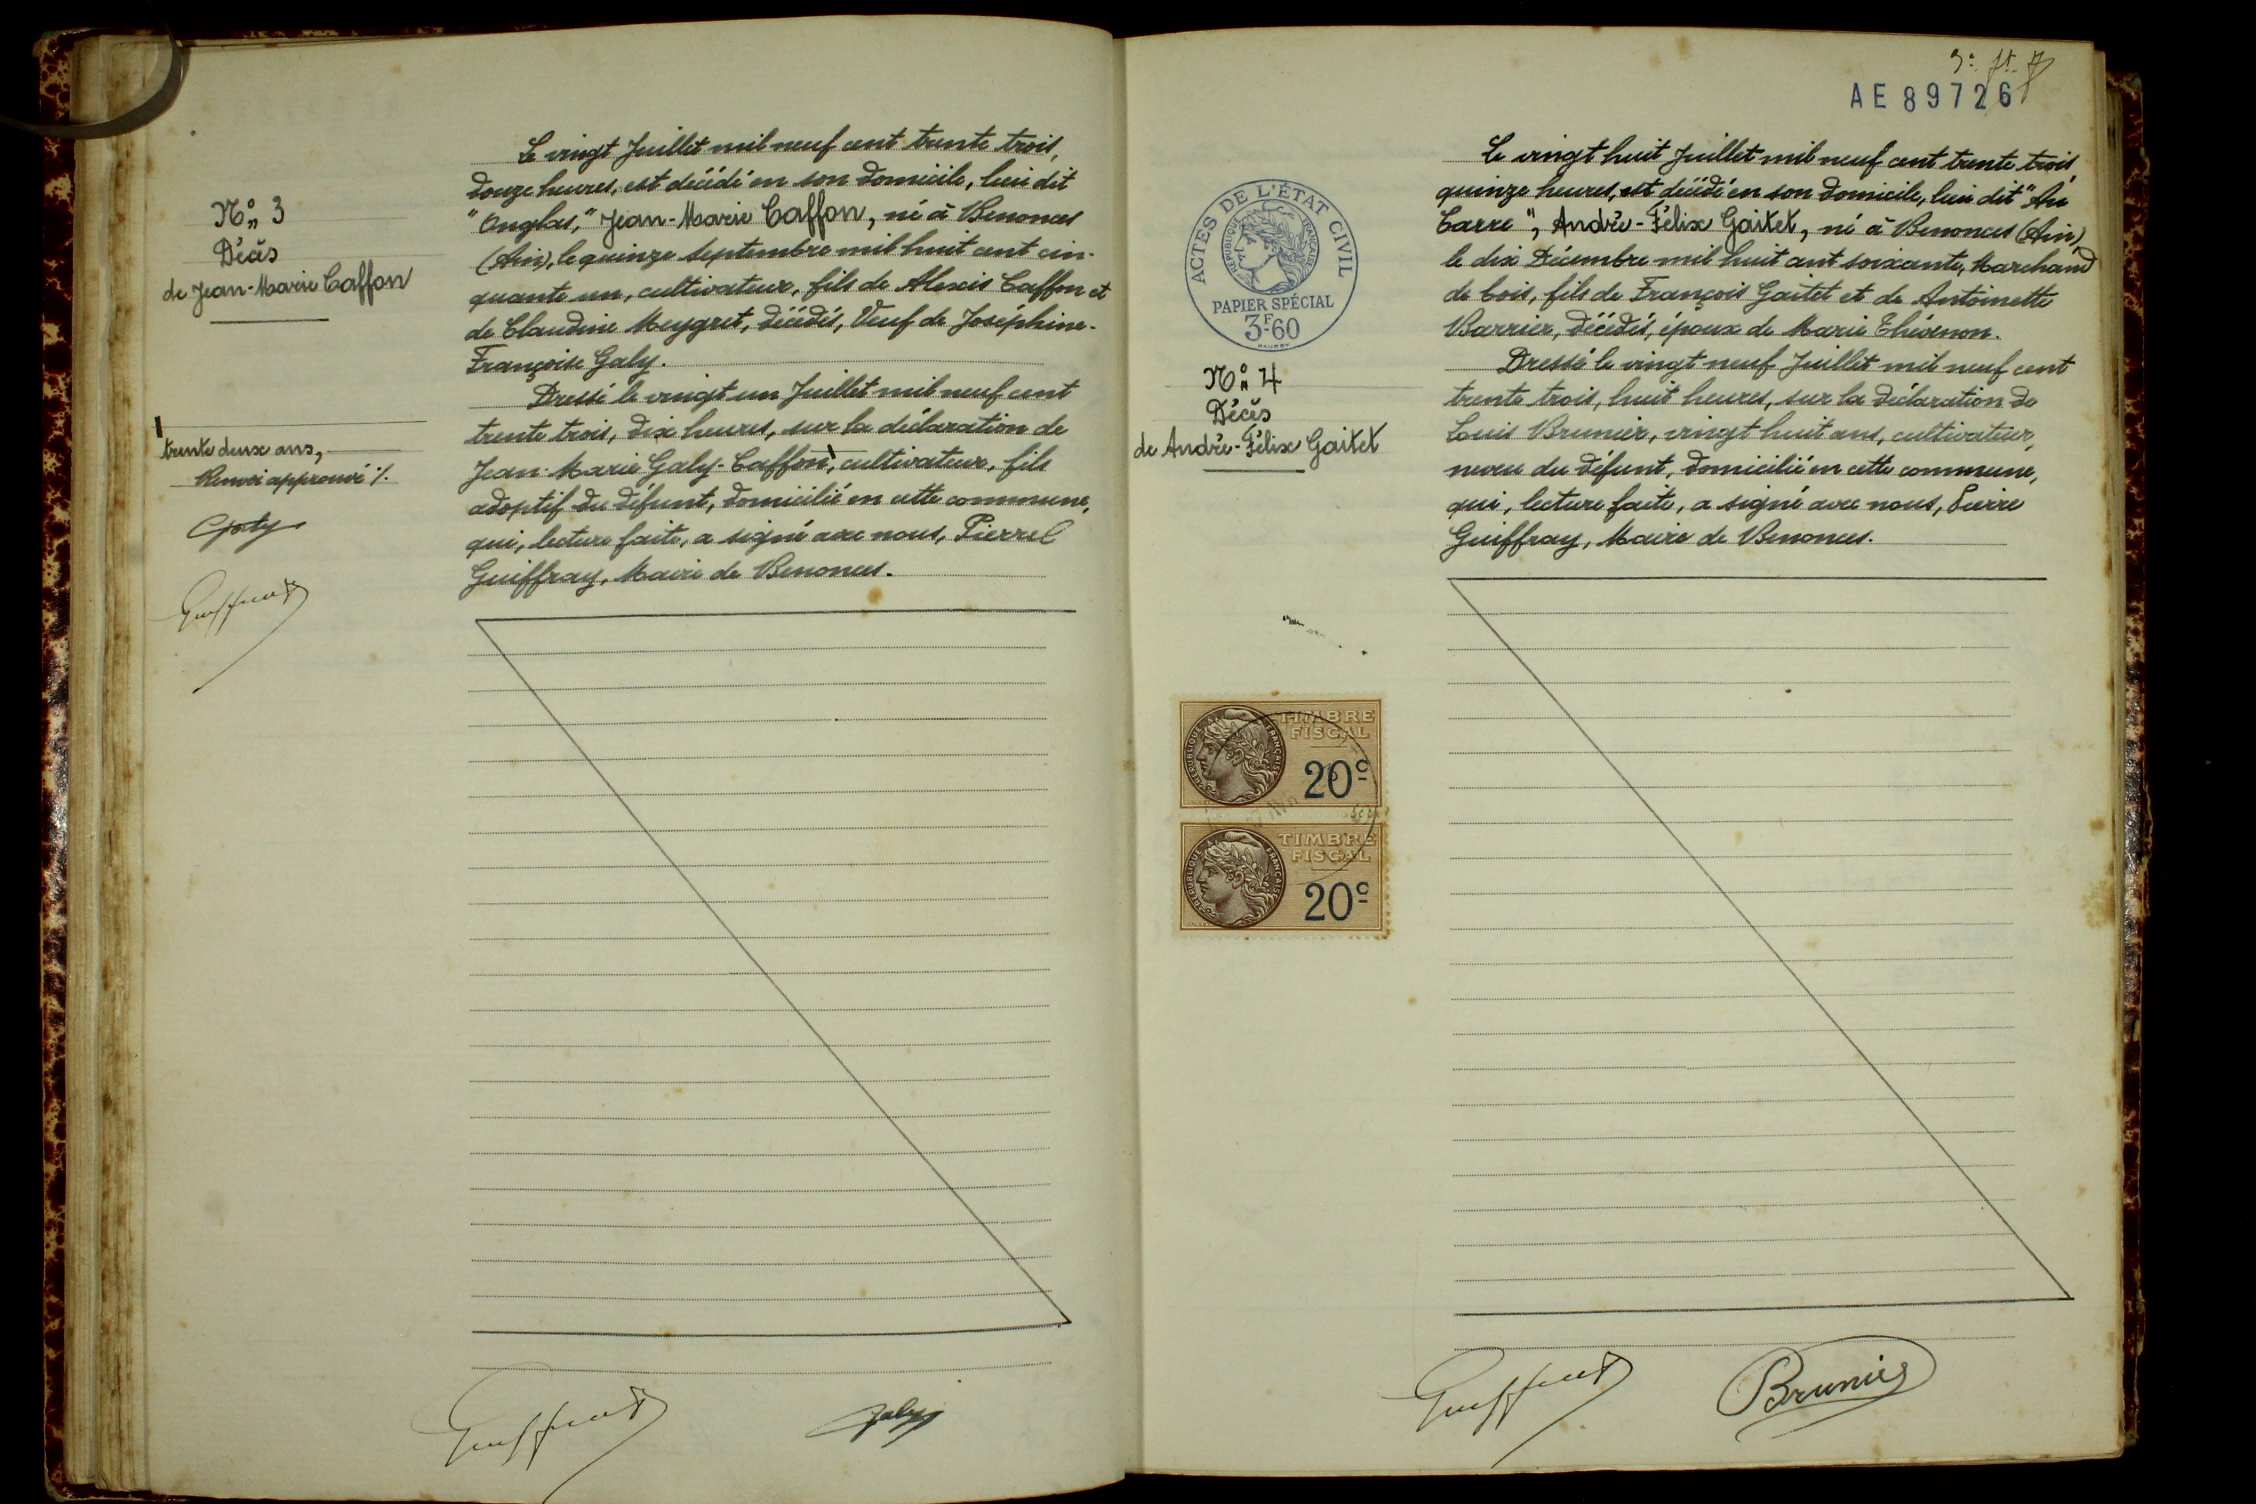 Nº 3
Décès
de Jean-Marie Caffon
trente deux ans,
Renvoi approuvé ./.
Galy
Guiffray
Le vingt Juillet mil neuf cent trente trois,
douze heures, est décédé en son domicile, lieu dit
"Onglas", Jean-Marie Caffon, né à Benonces
(Ain), le quinze septembre mil huit cent cin-
quante un, cultivateur, fils de Alexis Caffon et
de Claudine Meygret, décédés, Veuf de Joséphine-
Françoise Galy.
Dressé le vingt un Juillet mil neuf cent
trente trois, dix heures, sur la déclaration de
Jean-Marie Galy-Caffon, cultivateur, fils
adoptif du défunt, domicilié en cette commune,
qui, lecture faite, a signé avec nous, Pierre
Guiffray, Maire de Benonces.
Guiffray
Galy
AE 89726
ACTES DE L'ÉTAT CIVIL
RÉPUBLIQUE FRANÇAISE
PAPIER SPÉCIAL
3F-60
Nº 4
Décès
de André-Félix Gaitet
TIMBRE
FISCAL
RÉPUBLIQUE FRANÇAISE
20c
TIMBRE
FISCAL
RÉPUBLIQUE FRANÇAISE
20c
Le vingt huit Juillet mil neuf cent trente trois,
quinze heures, est décédé en son domicile, lieu dit "Au
Carre", André-Félix Gaitet, né à Benonces (Ain),
le dix Décembre mil huit cent soixante, Marchand
de bois, fils de François Gaitet et de Antoinette
Barrier, décédés, époux de Marie Thévenon.
Dressé le vingt neuf Juillet mil neuf cent
trente trois, huit heures, sur la déclaration de
Louis Brunier, vingt huit ans, cultivateur,
neveu du défunt, domicilié en cette commune,
qui, lecture faite, a signé avec nous, Pierre
Guiffray, Maire de Benonces.
Guiffray
Brunier